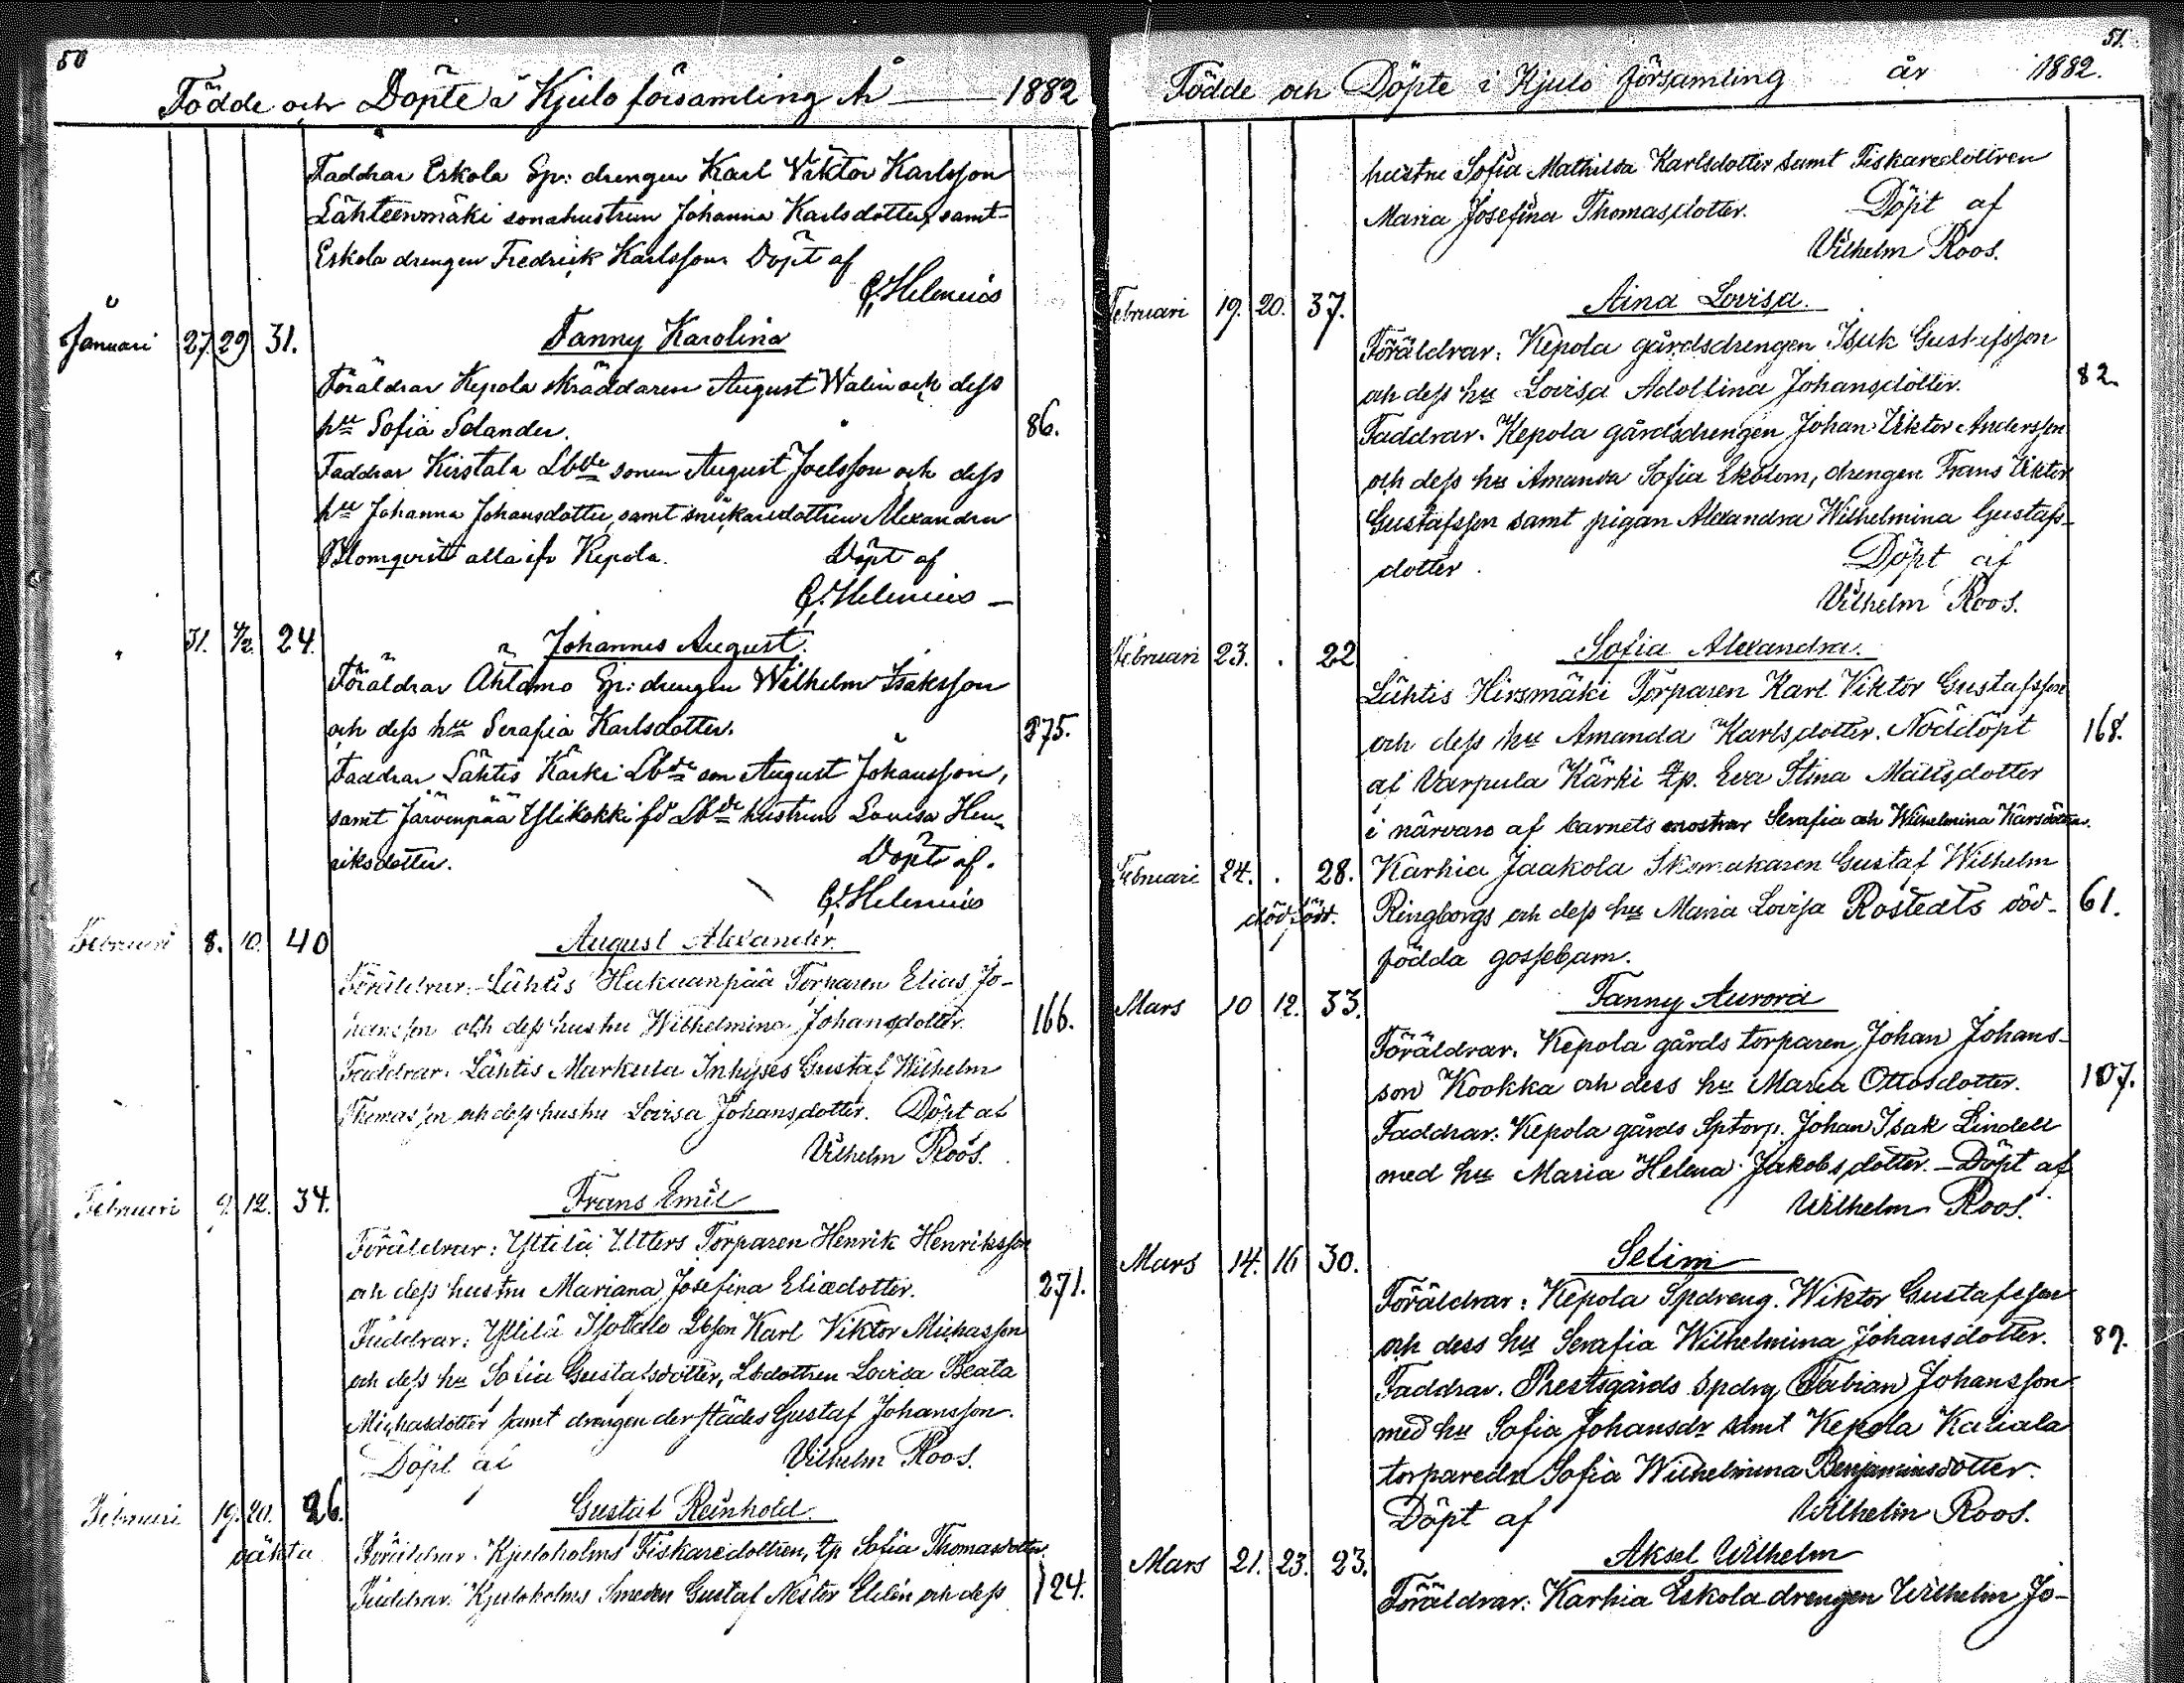 50
Födde och Döpte i Kjulo församling År 1882
Faddrar Eskola Sp: drengen Karl Viktor Karlsson
Lähteenmäki sonahustrun Johanna Karlsdotter, samt
Eskola drengen Fredrick Karlsson Döpt af
Helenius
Januari 27. 29 31. Fanny Karolina
Föräldrar Kepola skräddaren August Walin och dess
hu Sofia Selander. 86.
Faddrar Kirstala Lbde sonen August Joelsson och dess
hu Johanna Johansdotter, samt snickaredottren Alexandra
Blomqvist alla ifr Kepola. Döpt af
Helenius
31. 4/2. 24. Johannes August.
Föräldrar Ahtamo Sp: drengen Wilhelm Isaksson
och dess hu Serafia Karlsdotter. 275.
Faddrar Lähtis Kärki Lbde son August Johansson,
samt Järvenpää Ylikokki fd Lbde hustrun Lovisa Hen-
riksdotter. Döpt af.
Helenius
Februari 8. 10. 40 August Alexander.
Föräldrar: Lähtis Hukuanpää Torparen Elias Jo-
hansson och dess hustru Wilhelmina Johansdotter. 166.
Faddrar: Lähtis Markula Inhyses Gustaf Wilhelm
Thomasson och dess hustru Lovisa Johansdotter. Döpt af
Vilhelm Roos.
Februari 9. 12. 34. Frans Emil
Föräldrar: Yttilä Utters Torparen Henrik Henriksson
och dess hustru Mariana Josefina Eliædotter. 271.
Faddrar: Yttilä Isotalo Lbson Karl Viktor Michasson
och dess hu Sofia Gustafsdotter, Lbdottren Lovisa Beata
Michasdotter samt drengen derstädes Gustaf Johansson.
Döpt af Vilhelm Roos.
Februari 19. 20. 26. Gustaf Reinhold.
oäkta Föräldrar: Kjuloholms Fiskaredottren, tp Sofia Thomasdotter.
Faddrar: Kjuloholms Smeden Gustaf Nestor och dess 124.
51.
Födde och Döpte i Kjulo församling år 1882.
hustru Sofia Mathilda Karlsdotter samt Fiskaredottren
Maria Josefina Thomasdotter. Döpt af
Vilhelm Roos.
Februari 19. 20. 37. Aina Lovisa.
Föräldrar: Kepola gårdsdrengen Isak Gustafsson
och dess hu Lovisa Adolfina Johansdotter. 82.
Faddrar. Kepola gårdsdrengen Johan Viktor Andersson
och dess hu Amanda Sofia Ekblom, drengen Frans Viktor
Gustafsson samt pigan Alexandra Wilhelmina Gustafs-
dotter. Döpt af
Vilhelm Roos.
Februari 23. . 22 Sofia Alexandra.
Lähtis Hirsmäki Torparen Karl Viktor Gustafsson
och dess hu Amanda Karlsdotter. Nöddöpt 168.
af Varpula Kärki tp. Eva Stina Mattsdotter
i närvaro af barnets mostrar Serafia och Wilhelmina Karlsdöttrar.
Februari 24. . 28. Karhia Jaakola Skomakaren Gustaf Wilhelm
dödfödd. Ringborgs och dess hu Maria Lovisa Rostedts död- 61.
födda gossebarn.
Mars 10 12. 33. Fanny Aurora
Föräldrar. Kepola gårds torparen Johan Johans-
son Kookka och dess hu Maria Ottosdotter. 107.
Faddrar: Kepola gårds Sptorp. Johan Isak Lindell
med hu Maria Helena Jakobsdotter. Döpt af
Wilhelm Roos.
Mars 14. 16 30. Selim
Föräldrar: Kepola Spdreng. Wiktor Gustafsson
och dess hu Serafia Wilhelmina Johansdotter. 89.
Faddrar. Prestgårds Spdrg Fabian Johansson
med hu Sofia Johansdr samt Kepola Kaliala
torparedn Sofia Wilhelmina Benjaminsdotter.
Döpt af Wilhelm Roos.
Mars 21. 23. 23. Aksel Wilhelm
Föräldrar: Karhia Eskola drengen Wilhelm Jo-